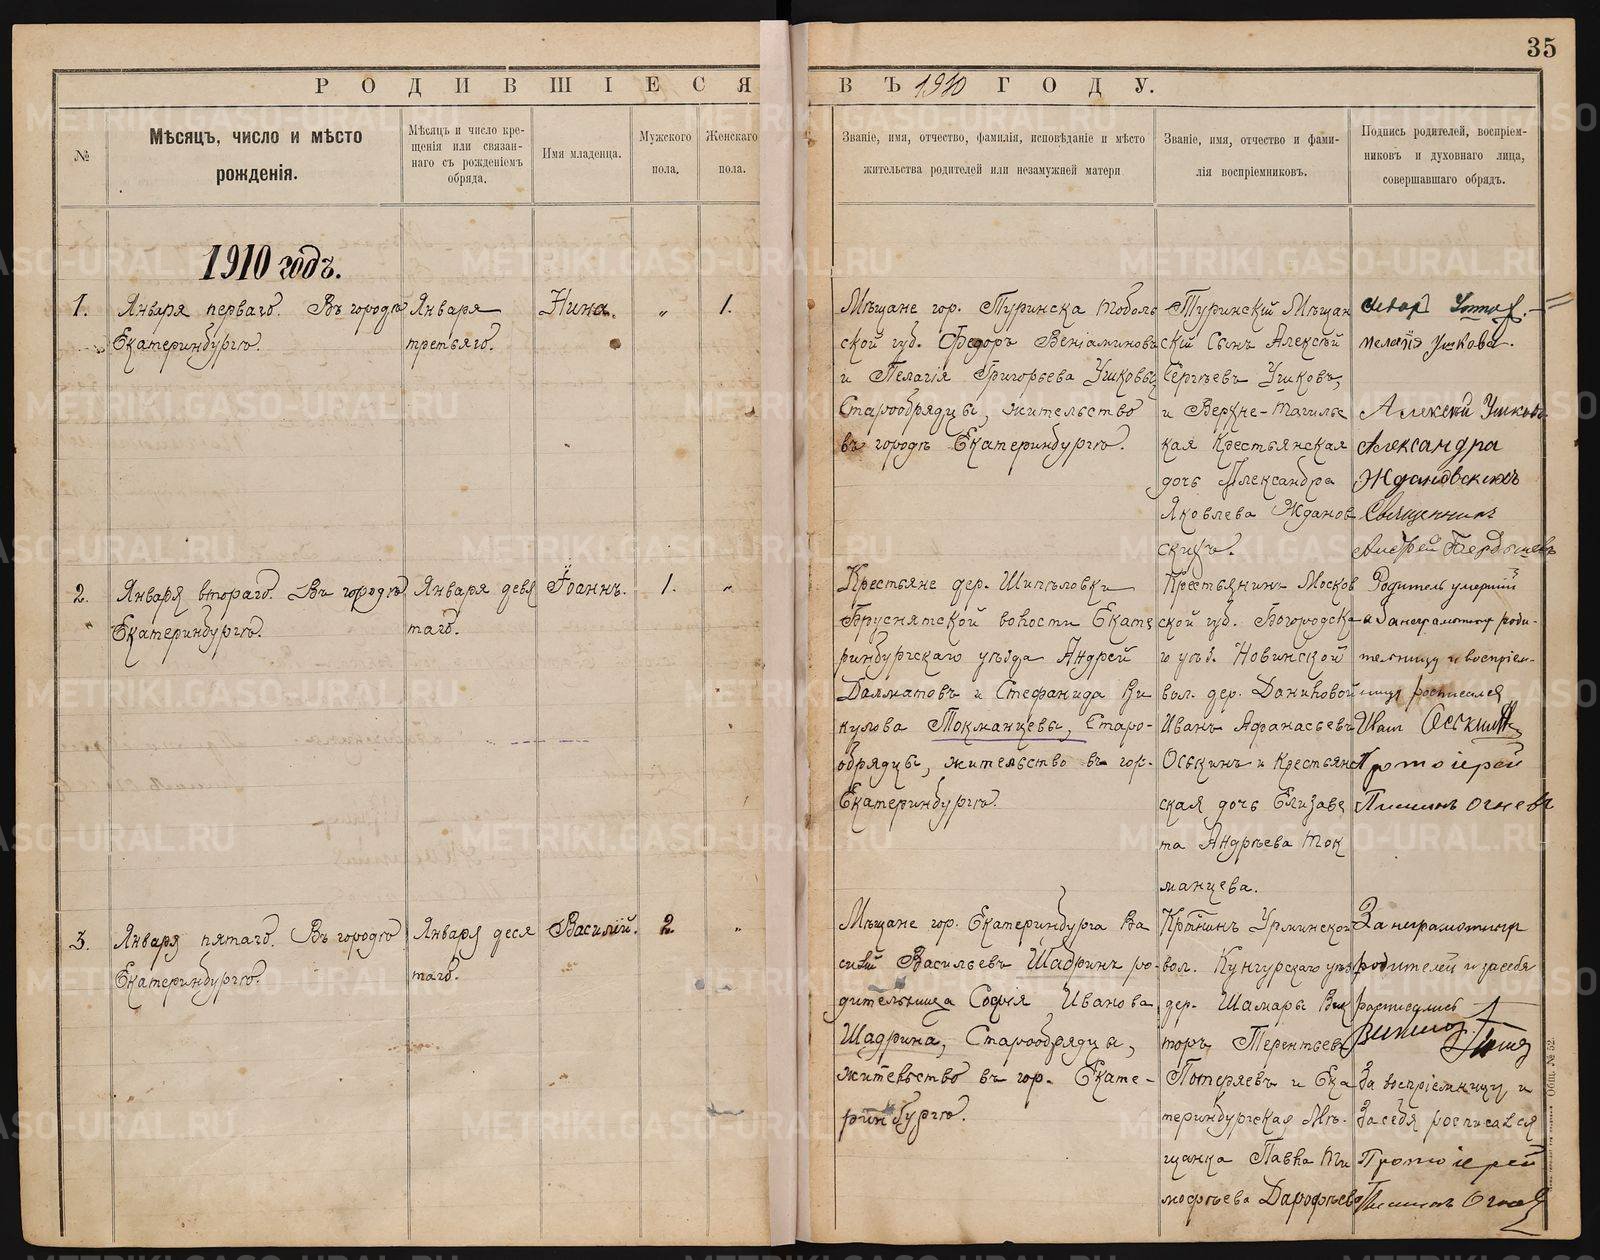 35
РОДИВШІЕСЯ ВЪ 1910 ГОДУ.
№
Мѣсяцъ, число и мѣсто
рожденія.
Мѣсяцъ и число кре-
щенія или связан-
наго съ рожденіемъ
обряда.
Имя младенца.
Мужского
пола.
Женскаго
пола.
Званіе, имя, отчество, фамилія, исповѣданіе и мѣсто
жительства родителей или незамужней матери
Званіе, имя, отчество и фами-
лія воспріемниковъ.
Подпись родителей, воспріем-
никовъ и духовнаго лица,
совершавшаго обрядъ.
1910 годъ.
1.
Января перваго. Въ городѣ
Екатеринбургѣ.
Января
третьяго.
Нина.
„
1.
Мѣщане гор. Туринска Тоболь
ской губ. Федоръ Веніаминовъ
и Пелагія Григорьева Ушковы,
Старообрядцы, жительство
въ городѣ Екатеринбургѣ.
Туринскій Мѣщан
скій Сынъ Алексѣй
Сергѣевъ Ушковъ,
и Верхне-Тагильс
кая Крестьянская
дочь Александра
Яковлева Жданов
скихъ.
Ушкова.
Алексѣй Ушковъ
Александра
Ждановскихъ
Священникъ
Андрей Бердышевъ
2.
Января втораго. Въ городѣ
Екатеринбургѣ.
Января девя
таго.
Іоаннъ.
1.
„
Крестьяне дер. Шипѣловки
Бруснятской волости Екате
ринбургскаго уѣзда Андрей
Далматовъ и Стефанида Ви
кулова Токманцевы, Старо-
обрядцы, жительство въ гор.
Екатеринбургѣ.
Крестьянинъ Москов
ской губ. Богородска
го уѣз. Новинской
вол. дер. Даниловой
Иванъ Афанасьевъ
Оськинъ и Крестьянс
ская дочь Елизаве
та Андрѣева Ток
манцева.
Родитель умершій
а за неграмотную роди-
тельницу и воспріем-
ницу росписался
Иван Оськинъ
Протоіерей
Огневъ
3.
Января пятаго. Въ городѣ
Екатеринбургѣ.
Января деся
таго.
Василій.
2
„
Мѣщане гор. Екатеринбурга Ва
силій Васильевъ Шадринъ ро-
дительница Софія Иванова
Шадрина, Старообрядцы,
жительство въ гор. Екате-
ринбургѣ.
Кртнинъ Урминской
вол. Кунгурскаго уѣз
дер. Шамары Вик
торъ Терентьевъ
Потеряевъ и Ека
теринбургская Мѣ-
щанка Павла Ти
мофѣева Дарофѣева
За неграмотных
родителей и за себя
росписались
За воспріемницу и
За себя росписался
Протоіерей